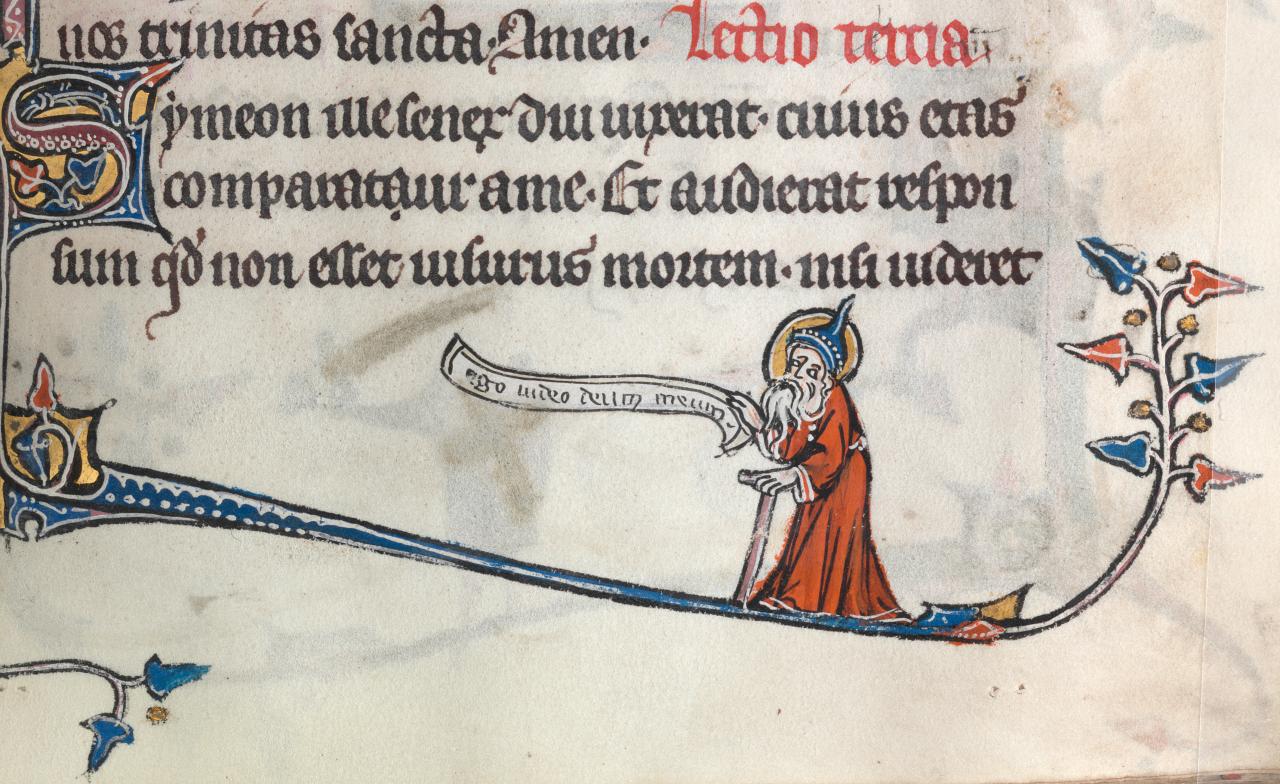 nos trinitas sancta. Amen. Lectio tercia
Symeon ille senex diu uixerat. cuius etas
comparatur a me. Et audierat respon
sum qd non esset uisurus mortem. nisi uideret
ego uideo deum meum